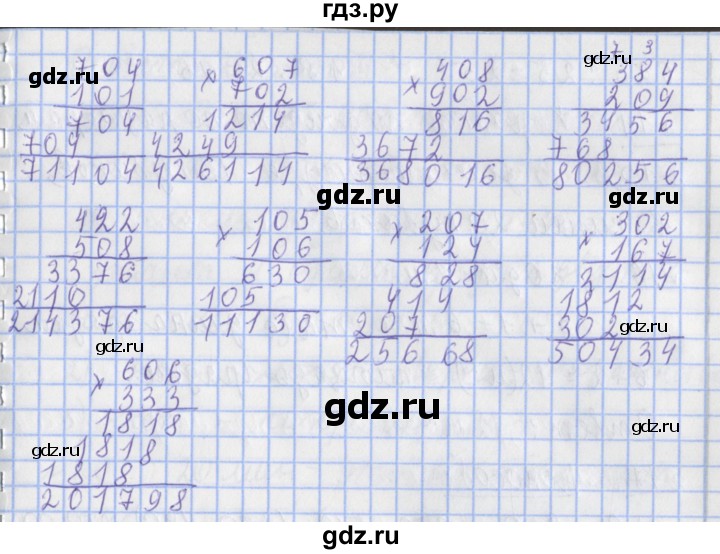 гдз.ру
704 × 607 × 408 7 3 384
101 702 902 209
704 1214 816 3456
704 4249 3672 768
71104 426114 368016 80256
422 × 105 × 207 × 302
508 106 124 167
3376 630 828 2114
2110 105 414 1812
214376 11130 207 302
25668 50434
× 606
333
1818
1818
1818
201798
gdz.ru
gdz.ru
gdz.ru
gdz.ru
gdz.ru
gdz.ru
gdz.ru
gdz.ru
gdz.ru
gdz.ru
gdz.ru